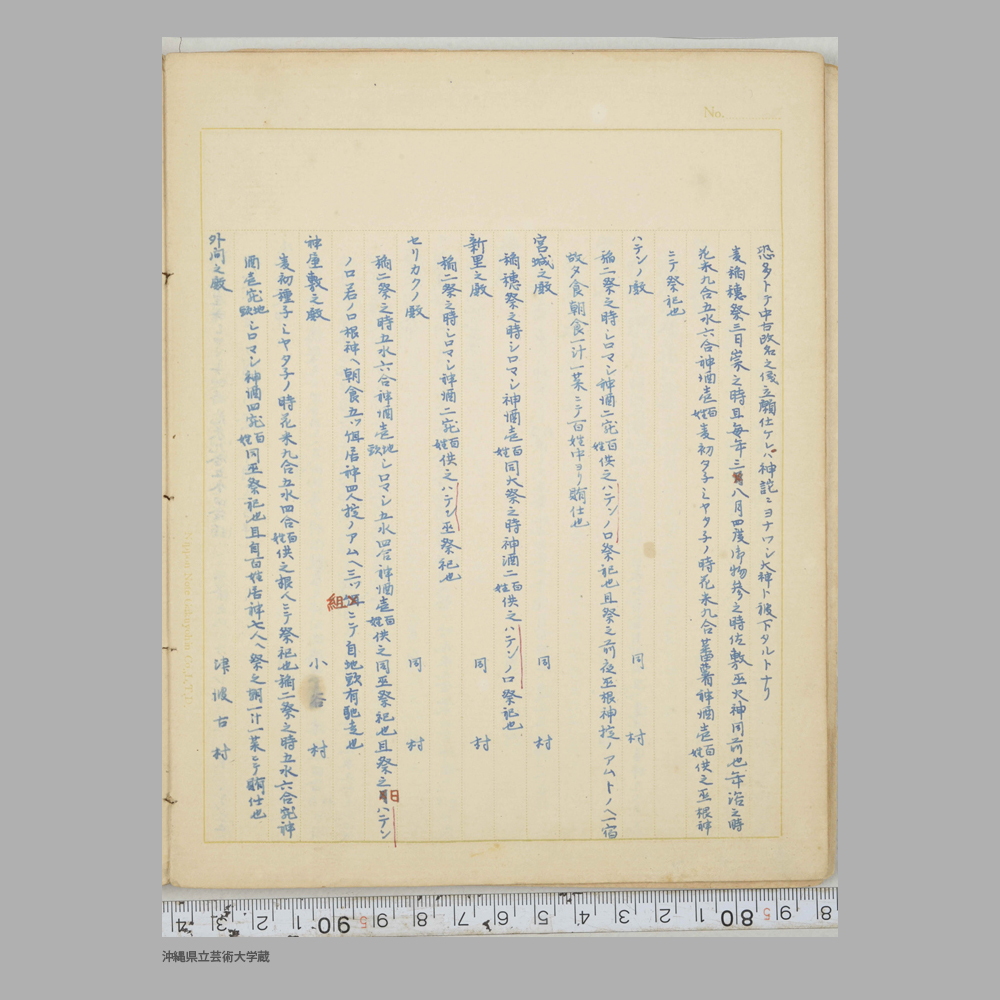 No.
恐多トテ中古改名之侵立願仕ケレバ神託ニヨナワシ大神ト被下タルトナリ
麦稲穂祭三日崇之時且毎年三八月四度御物参之時佐敷巫火神同前也年浴之時
花米九合五水六合神酒壱百姓麦初タ子ミヤタ子ノ時花米九合蕃薯神酒壱百姓供之巫根神
ニテ祭祀也
ハテンノ殿 同村
稲二祭之時シロマシ神酒二宛百姓供之ハテンノロ祭祀也且祭之前夜巫根神掟ノアムトノヘ一宿
故夕食朝食一汁一菜ニテ百姓中ヨリ賄仕也
宮城之殿 同村
稲穂祭之時シロマシ神酒壱百姓同大祭之時神酒二百姓供之ハテンノロ祭祀也
新里之殿 同村
稲二祭之時シロマシ神酒二宛百姓供之ハテン巫祭祀也
セリカクノ殿 同村
稲二祭之時五水六合神酒壱地頭シロマシ五水四合神酒壱百姓供之同巫祭祀也且祭之日ハテン
ノロ若ノロ根神ヘ朝食五ツ組居神四人掟ノアムヘ三ツ組ニテ自地頭有馳走也
神座敷之殿 小谷村
麦初種子ミヤタ子ノ時花米九合五水四合百姓供之根人ニテ祭祀也稲二祭之時五水六合宛神
酒壱宛地頭シロマシ神酒四宛百姓同巫祭祀也且自百姓居神七人ヘ祭之朝一汁一菜ニテ賄仕也
外間之殿 津波古村
4 3 2 1 90 9 8 7 6 5 4 3 2 1 80 9 8
沖縄県立芸術大学蔵